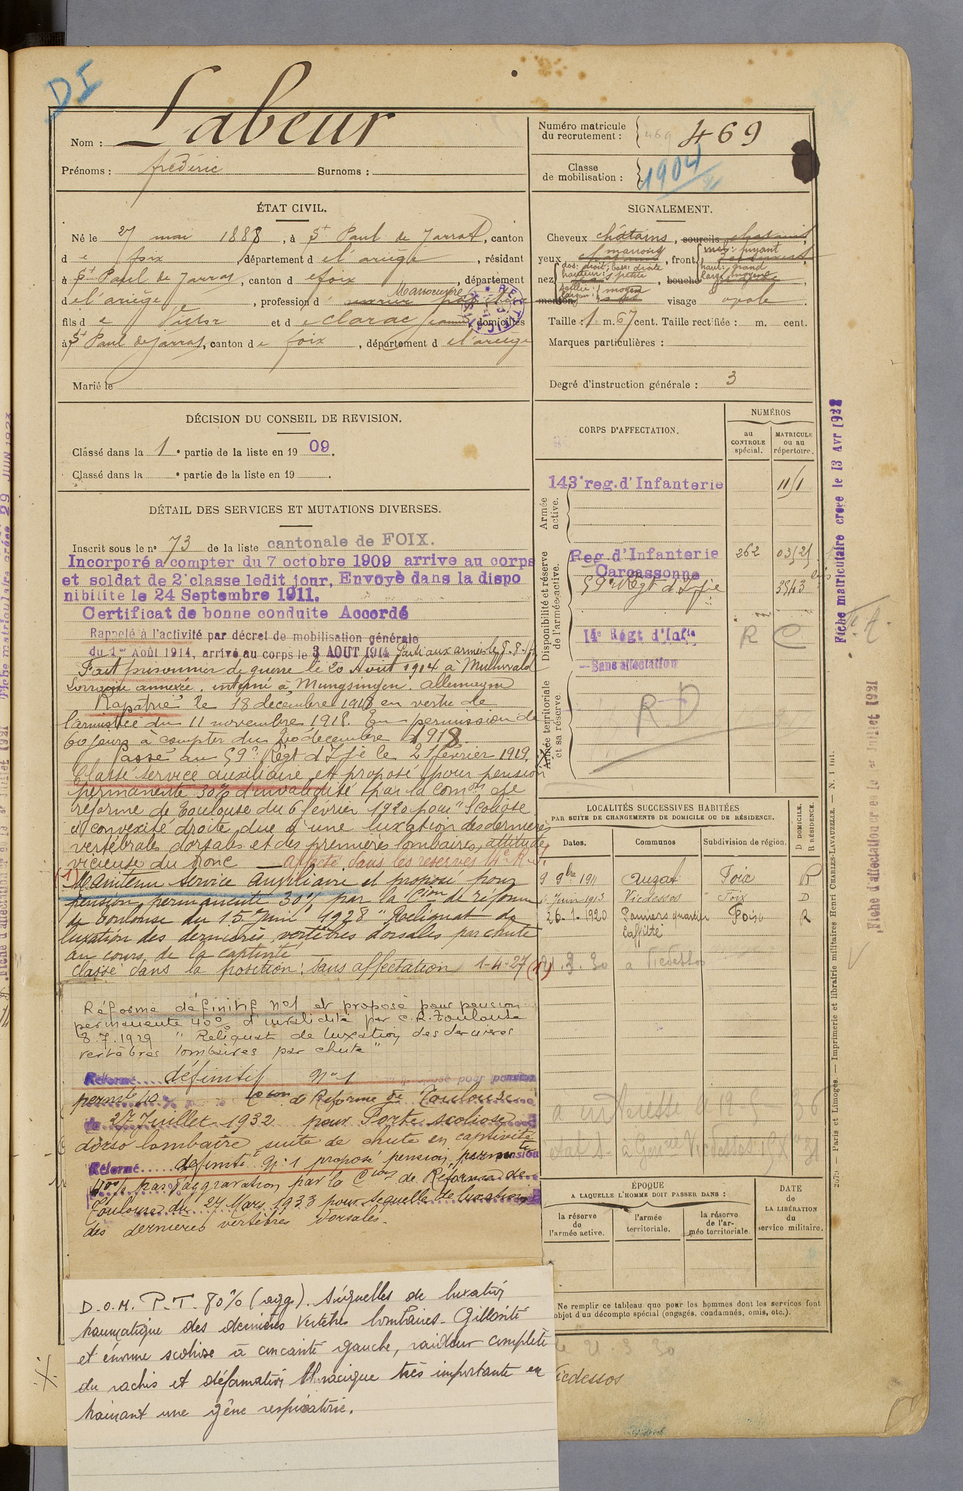 DI
Nom : Labeur
Prénoms : frédéric Surnoms :
Numéro matricule
du recrutement : 469 469
Classe
de mobilisation : 1904
ÉTAT CIVIL.
Né le 27 mai 1888, à St Paul de Jarrat, canton
d e foix, département d e l'ariège, résidant
à St Paul de Jarrat, canton d e foix, département
d e l'ariège, profession d Manoeuvre
fils d e Victor et d e Clarac Jeanne domiciliés
à St Paul de Jarrat, canton d e foix, département d e l'ariège
Marié le
SIGNALEMENT.
Cheveux châtains, sourcils châtains
yeux marrons, front moy: fuyant
nez dos: droit, base: droite bouche haut: grand
hauteur: petite
saillie: moyen
menton, visage ovale
Taille : 1 m. 67 cent. Taille rectifiée : m. cent.
Marques particulières :
Degré d'instruction générale : 3
DÉCISION DU CONSEIL DE REVISION.
Classé dans la 1e partie de la liste en 1909.
Classé dans la e partie de la liste en 19 .
DÉTAIL DES SERVICES ET MUTATIONS DIVERSES.
Inscrit sous le n° 73 de la liste cantonale de FOIX.
Incorporé à compter du 7 octobre 1909 arrive au corps
et soldat de 2e classe ledit jour, Envoyé dans la dispo
nibilité le 24 Septembre 1911.
Certificat de bonne conduite Accordé
Rappelé à l'activité par décret de mobilisation générale
du 1er Août 1914, arrivé au corps le 3 AOUT 1914 Parti aux armées le 8-8-14
Fait prisonnier de guerre le 20 Aout 1914 à Mulwald
Lorraine annexée, interné à Mungsingen. Allemagne
Rapatrié le 18 decembre 1918 en vertu de
l'armistice du 11 novembre 1918. En permission de
60 jours à compter du 20 decembre 1918.
Passé au 59e Régt d'Ifie le 21 février 1919.
Classé service auxiliaire et proposé pour pension
permanente 30% d'invalidité par la Comon de
réforme de Toulouse du 6 fevrier 1920 pour "Scoliose
à convexité droite, due à une luxation des dernieres
vertébrales dorsales et des premieres lombaires, attitude
vicieuse du tronc — affecté dans les reserves 14e R.I.
(1) Maintenu service auxiliaire et proposé pour
pension permanente 30% par la Cion de réforme
de Toulouse du 15 Juin 1928 "Reliquat de
luxation des dernieres vertèbres dorsales par chute
au cours de la captivité
Classé dans la position: Sans affectation 1-4-27
Réformé définitif n°1 et proposé pour pension
permanente 40% d'invalidité par C.R. Toulouse
8.7.1929 "Reliquat de luxation des dernieres
vertèbres lombaires par chute"
Réformé définitif N° 1 proposé pour pension
permte 40 % Comon de Réforme de Toulouse
du 27 Juillet 1932 pour Porte scoliose
dorso lombaire suite de chute en captivité
Réformé définitif N° 1 proposé pension permanente
par aggravation par la Cion de Réforme de
Toulouse du 24 Mars 1933 pour sequelle de luxation
des dernieres vertèbres dorsales.
D.O.M. P.T. 80% (agg). Séquelles de luxation
traumatique des dernières Vertèbres lombaires. Gibbosité
et énorme scoliose à concavité gauche, raideur complète
du rachis et déformation thoracique très importante en
trainant une gêne respiratoire.
CORPS D'AFFECTATION.
NUMÉROS
au
CONTROLE
spécial.
MATRICULE
ou au
répertoire.
Armée
active.
143e reg. d'Infanterie
Disponibilité et réserve
de l'armée active.
Reg. d'Infanterie 262
Carcassonne
59e Régt d'Ifie 3543
14e Régt d'Infie R C
Sans affectation
Armée territoriale
et sa réserve
RD
LOCALITÉS SUCCESSIVES HABITÉES
PAR SUITE DE CHANGEMENTS DE DOMICILE OU DE RÉSIDENCE.
Dates. Communes Subdivision de région. D DOMICILE. R RÉSIDENCE.
9 9bre 1911 Auzat Foix R
Juin 1913 Vicdessos Foix D
26-1-1920 Pamiers quartier Foix R
(1) 21.3.30 à Vicdessos
ÉPOQUE
A LAQUELLE L'HOMME DOIT PASSER DANS :
la réserve
de
l'armée active.
l'armée
territoriale.
la réserve
de l'ar-
mée territoriale.
DATE
de
LA LIBÉRATION
du
service militaire.
Ne remplir ce tableau que pour les hommes dont les services font
objet d'un décompte spécial (engagés, condamnés, omis, etc.).
le 21.3.30
Vicdessos
Fiche matriculaire créée le 13 Avr 1928
Fiche d'affectation créée le Juillet 1921
Paris et Limoges. — Imprimerie et librairie militaires Henri CHARLES-LAVAUZELLE.